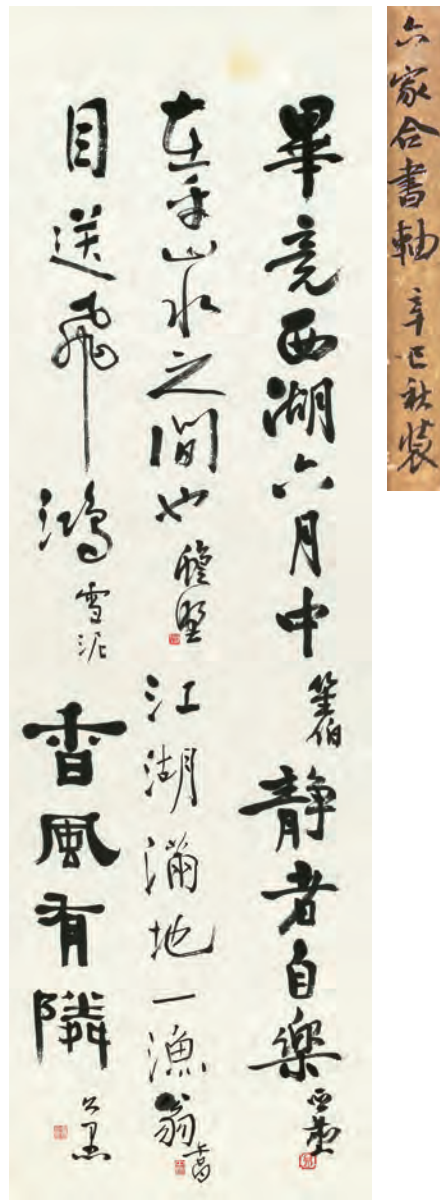 六家合書軸 辛巳秋裝
畢竟西湖六月中 笙伯
静者自樂
在乎山水之間也
江湖滿地一漁翁
目送飛鴻 雪泥
香風有隣